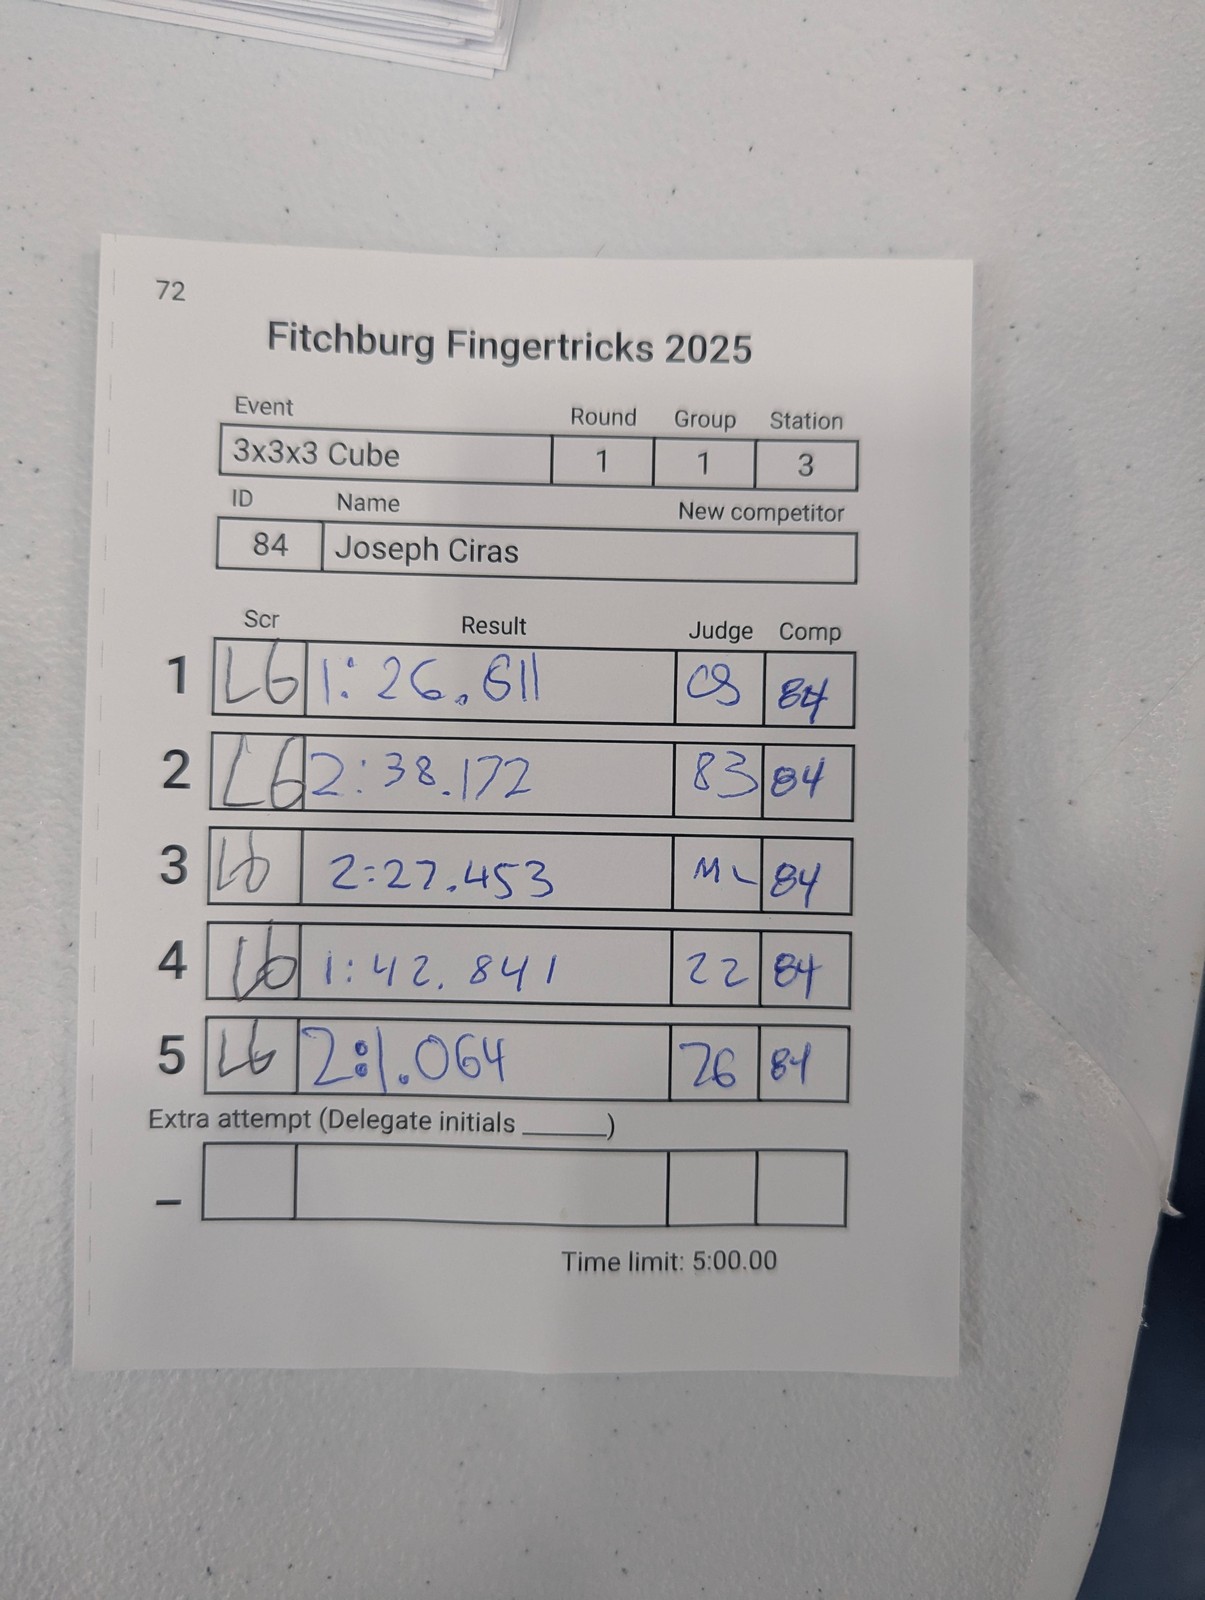 72
Fitchburg Fingertricks 2025
Event Round Group Station
3x3x3 Cube 1 1 3
ID Name New competitor
84 Joseph Ciras
Scr Result Judge Comp
1 L6 1:26.611 CS 84
2 L6 2:38.172 83 84
3 L6 2:27.453 ML 84
4 L6 1:42.841 22 84
5 L6 2:1.064 26 84
Extra attempt (Delegate initials ______)
–
Time limit: 5:00.00